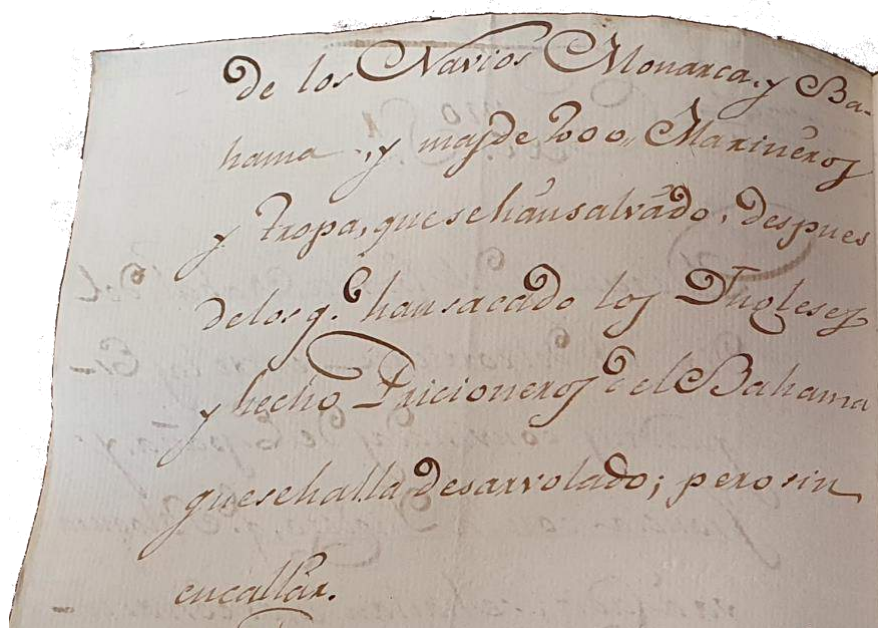 de los Navios Monarca, y Ba-
hama, y mas de 7000,, Marineros
y tropa, que se hán salvádo, despues
de los q.e han sacado los Ingleses
y hecho Pricioneros del Bahama
que se halla desarvolado; pero sin
encallár.